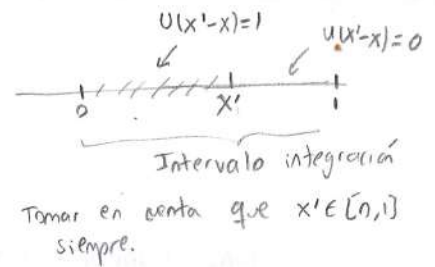 U(x'-x)=1
U(x'-x)=0
0 x' 1
Intervalo integración
Tomar en cuenta que x' ∈ [0,1]
siempre.